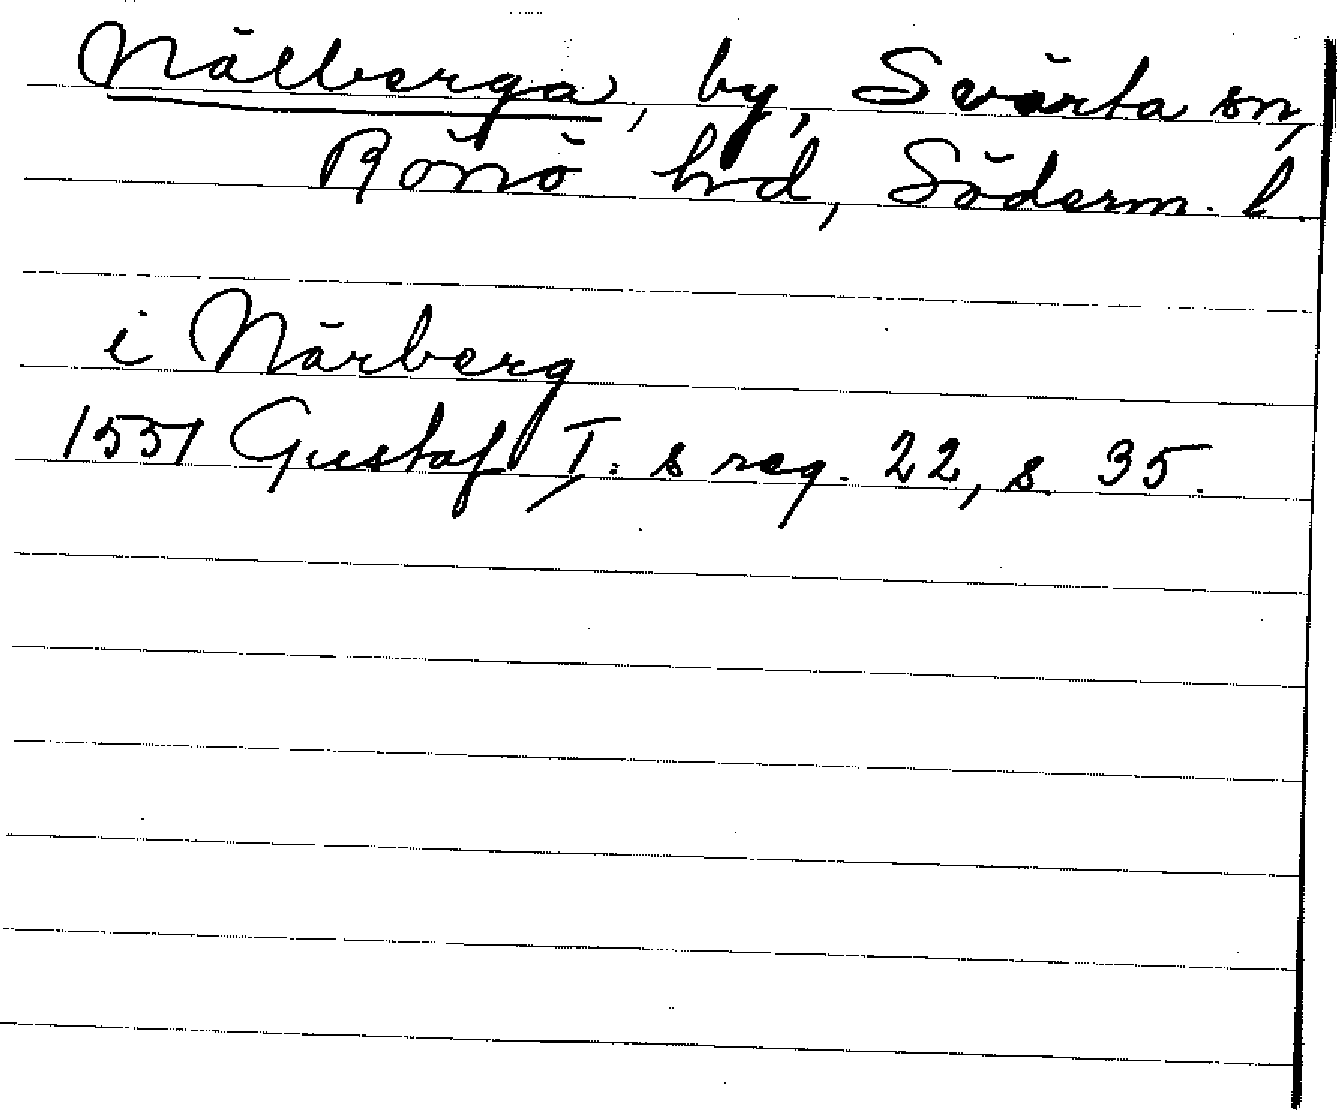 Nälberga, by, Svärta sn,
Rönö hd, Söderm. l.
i Närberg
1551 Gustaf I:s reg. 22, s. 35.